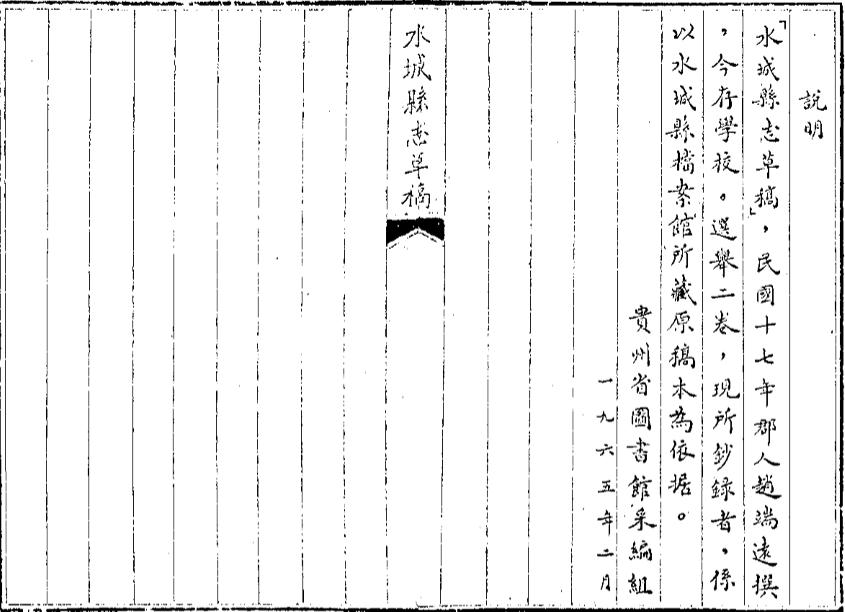 說明
「水城縣志草稿」，民國十七年郡人趙端遠撰
，今存學校。選舉二卷，現所鈔録者，係
以水城縣檔案館所藏原稿本為依据。
貴州省圖書館采編組
一九六五年二月
水城縣志草稿